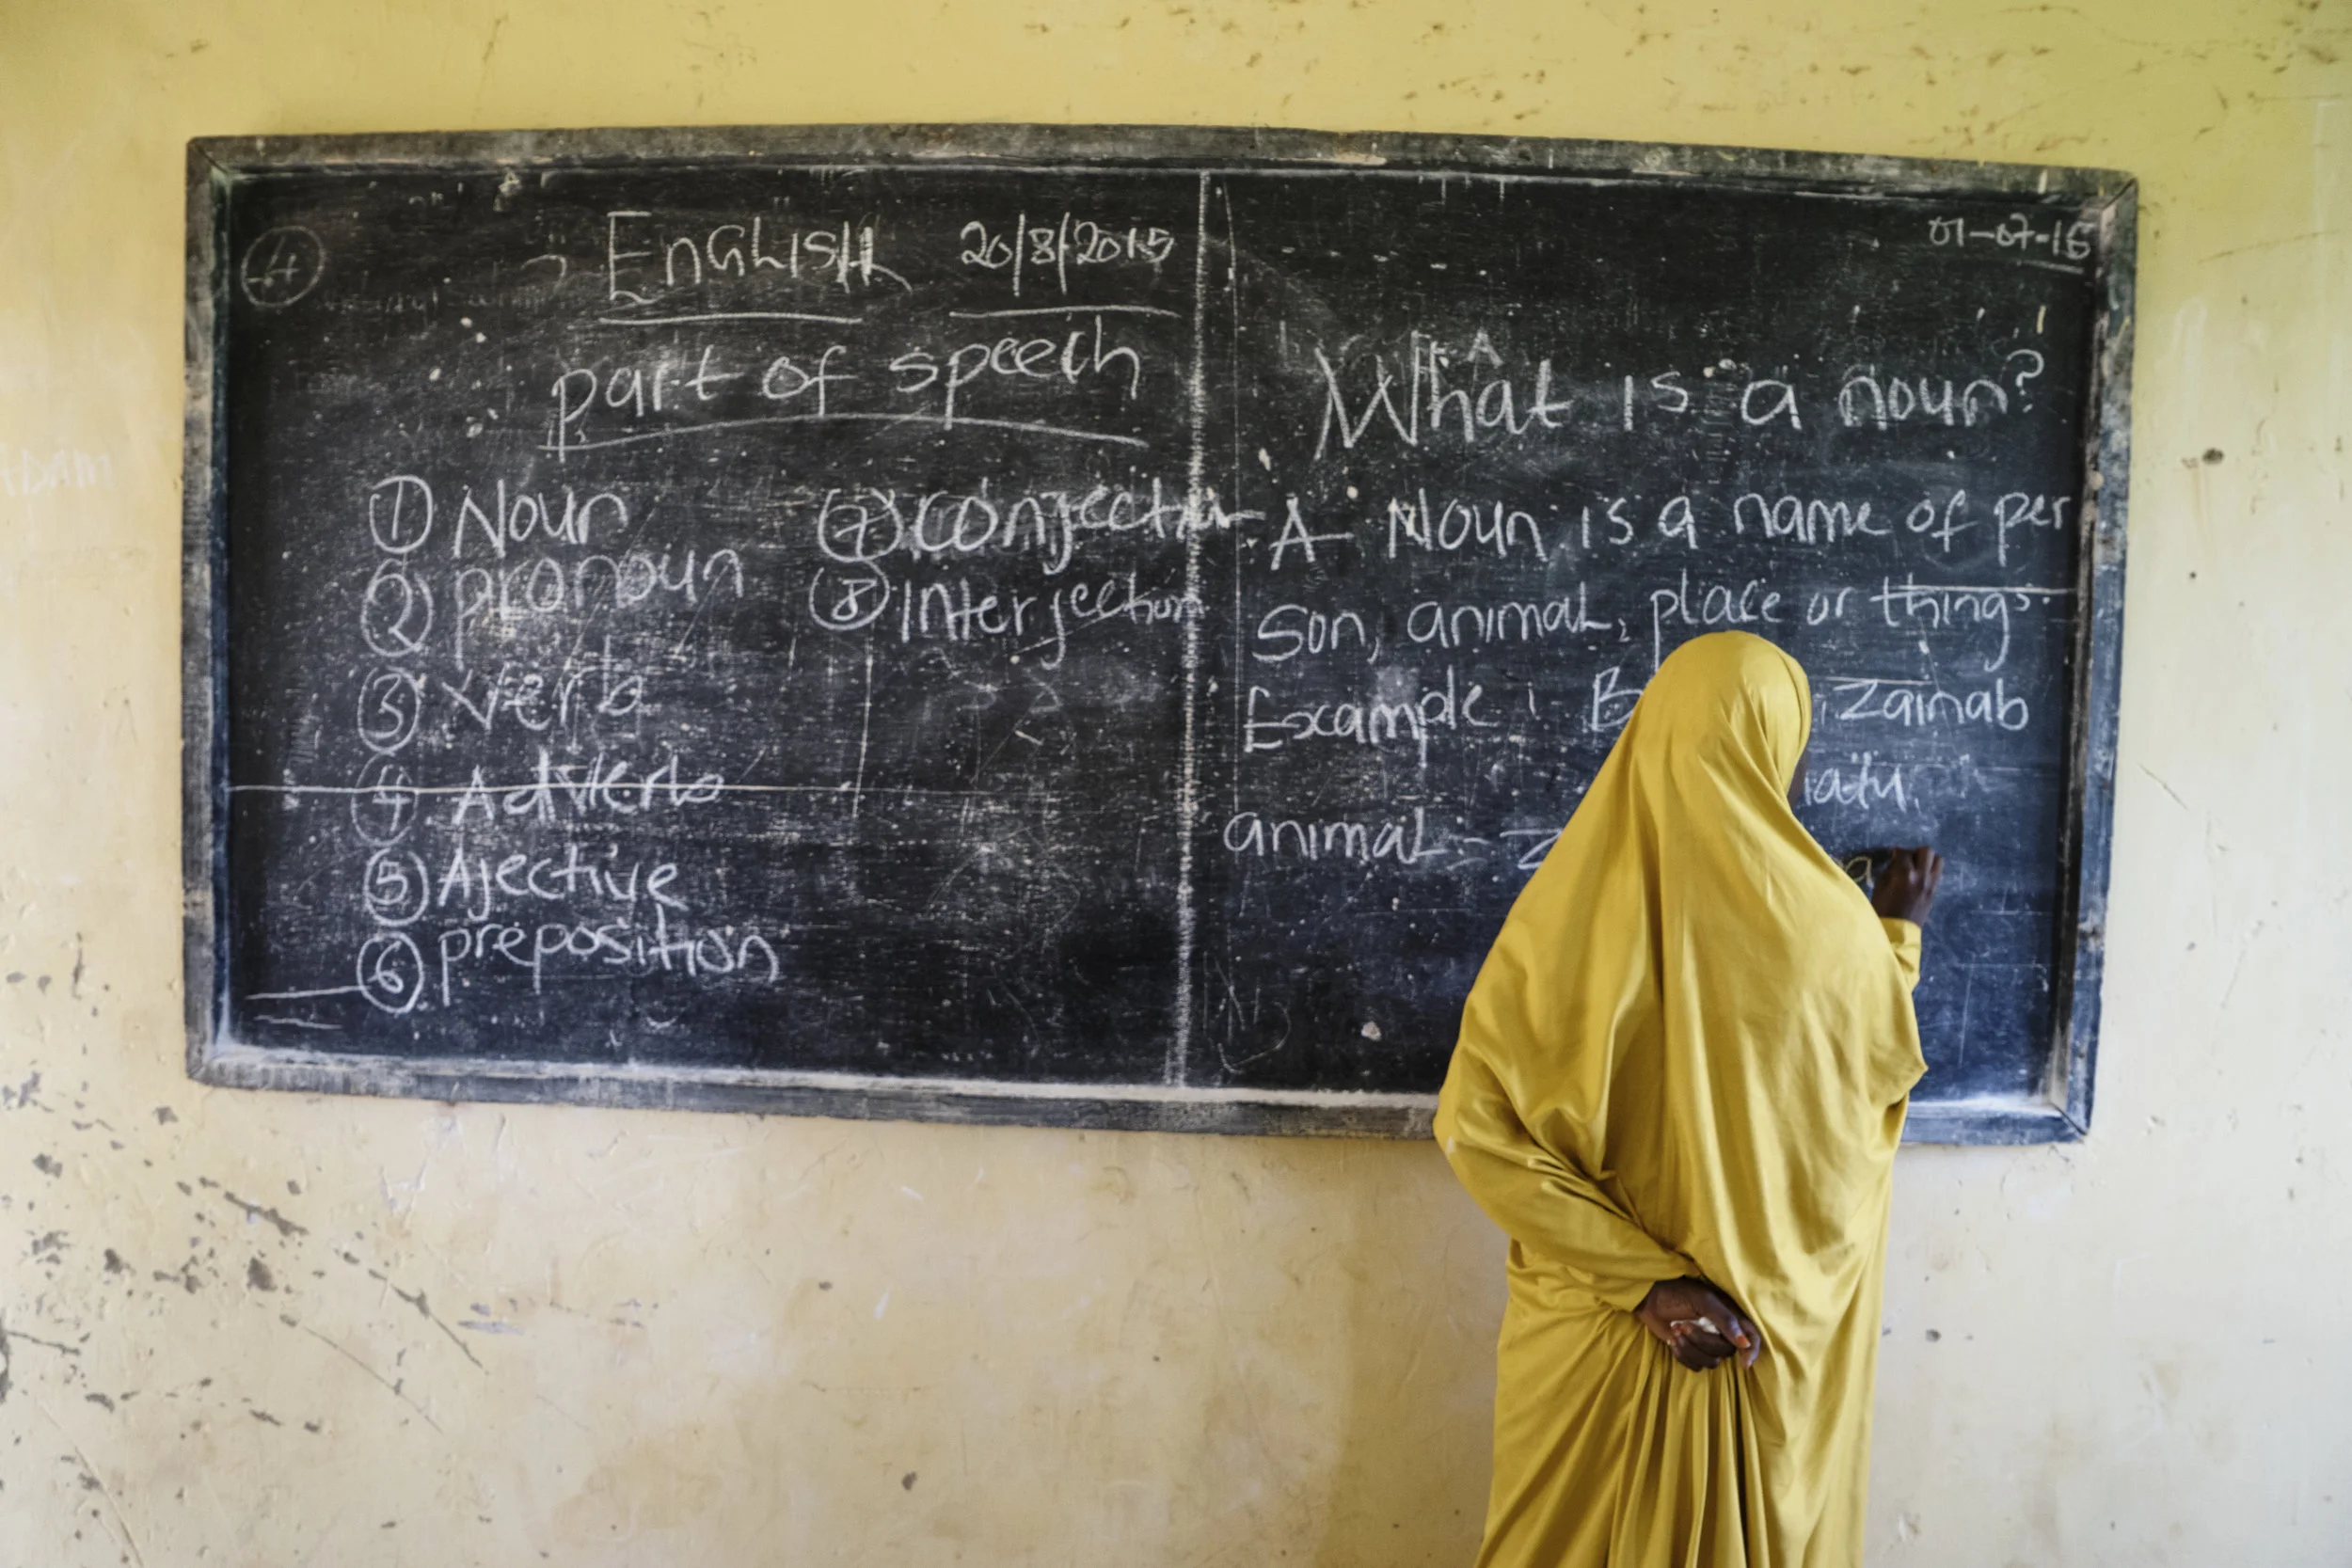 4
ENGLISH 20/8/2015
part of speech
① Noun
② pronoun
③ Verb
④ Adverb
⑤ Ajective
⑥ preposition
⑦ conjection
⑧ Interjection
01-07-16
What is a noun?
A Noun is a name of per
Son, animal, place or things.
Example: Zainab
animal -